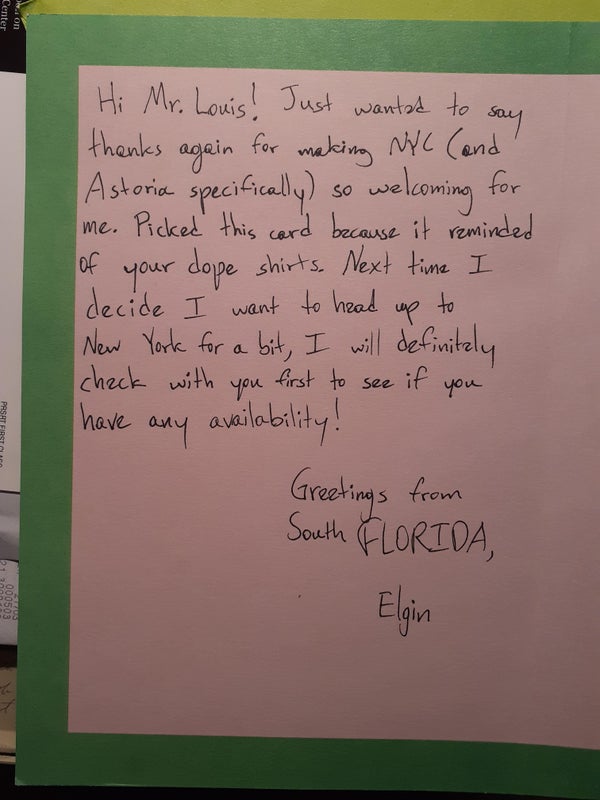 Hi Mr. Louis! Just wanted to say
thanks again for making NYC (and
Astoria specifically) so welcoming for
me. Picked this card because it reminded
of your dope shirts. Next time I
decide I want to head up to
New York for a bit, I will definitely
check with you first to see if you
have any availability!
Greetings from
South FLORIDA,
Elgin
Center
000503